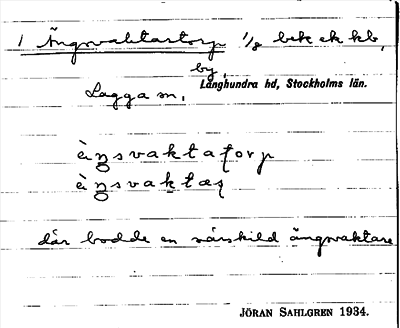 1 Ängsvaktartorp 1/8 bek ek kb,
by,
Långhundra hd, Stockholms län.
Lagga sn,
där bodde en särskild ängsvaktare
JÖRAN SAHLGREN 1934.